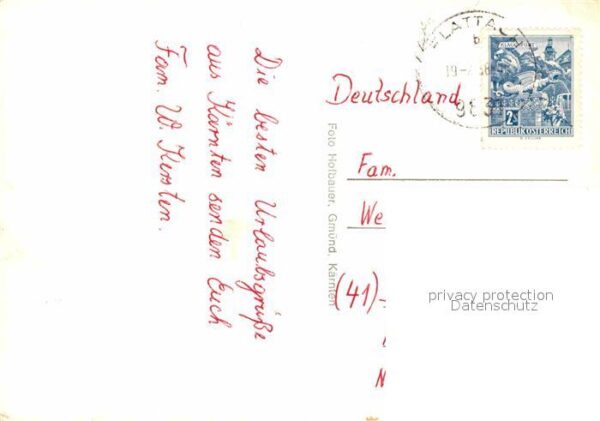 Die besten Urlaubsgrüße
aus Kärnten senden Euch
Fam. W. Kersten.
Foto Hofbauer, Gmünd, Kärnten
Deutschland
Fam.
We
(41)-
N
2S
REPUBLIK ÖSTERREICH
privacy protection
Datenschutz